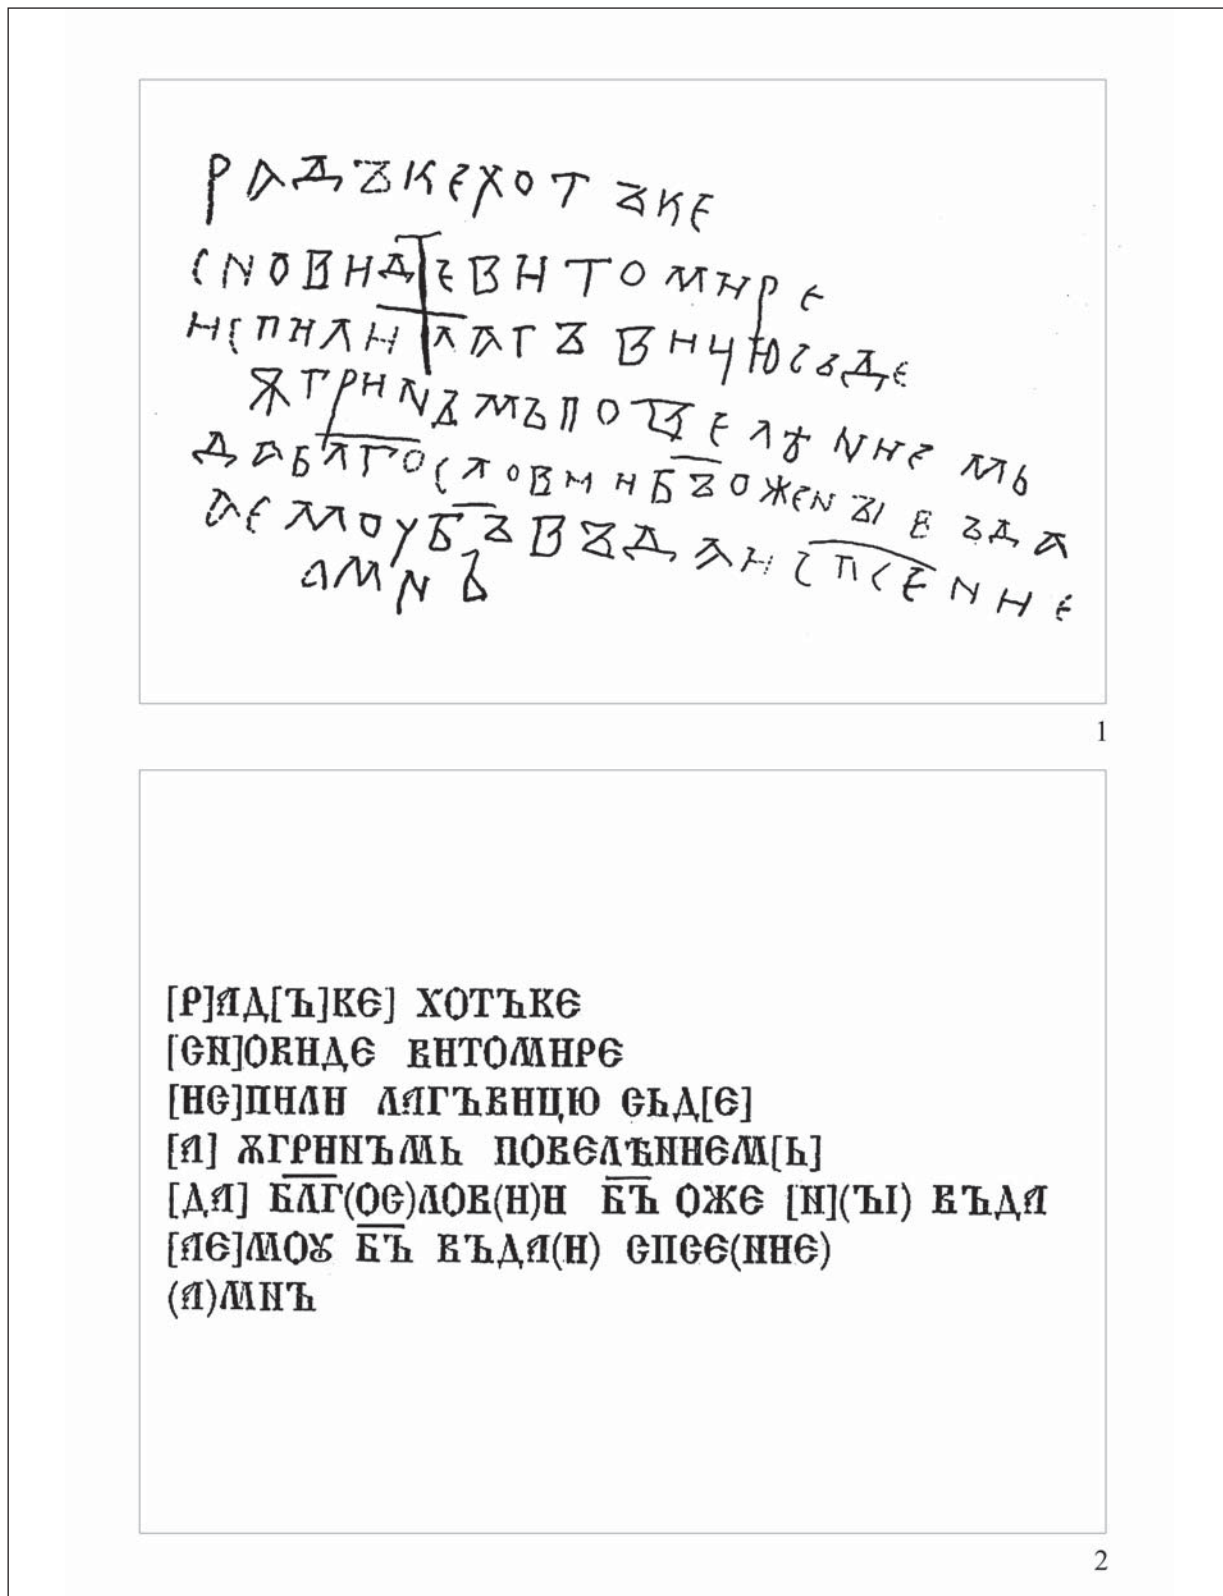 РАДЪКЕХОТЪКЕ
СНОВИДЕВИТОМИРЕ
ИСПИЛИЛАГЪВИЦЮСЪДЕ
ѪГРИНЪМЪПОВЕЛѢНИЕМЬ
ДАБЛ҃ГОСЛОВИИБЪ҃ОЖЕНЪІВЪДА
АЕМОУБЪ҃ВЪДАИСП҃СЕНИЕ
АМНЪ
1
[Р]АД[Ъ]КЄ] ХОТЪКЄ
[СН]ОВИДЄ ВИТОМИРЄ
[ИС]ПИЛИ ЛАГЪВИЦЮ СЬД[Є]
[А] ѪГРИНЪМЬ ПОВЄЛѢНИЄМ[Ь]
[ДА] БЛ҃Г(ОС)ЛОВ(И)И БЪ҃ ОЖЄ [Н](ЪІ) ВЪДА
[АЄ]МОꙊ БЪ҃ ВЪДА(И) СПСЄ(НИЄ)
(А)МНЪ
2